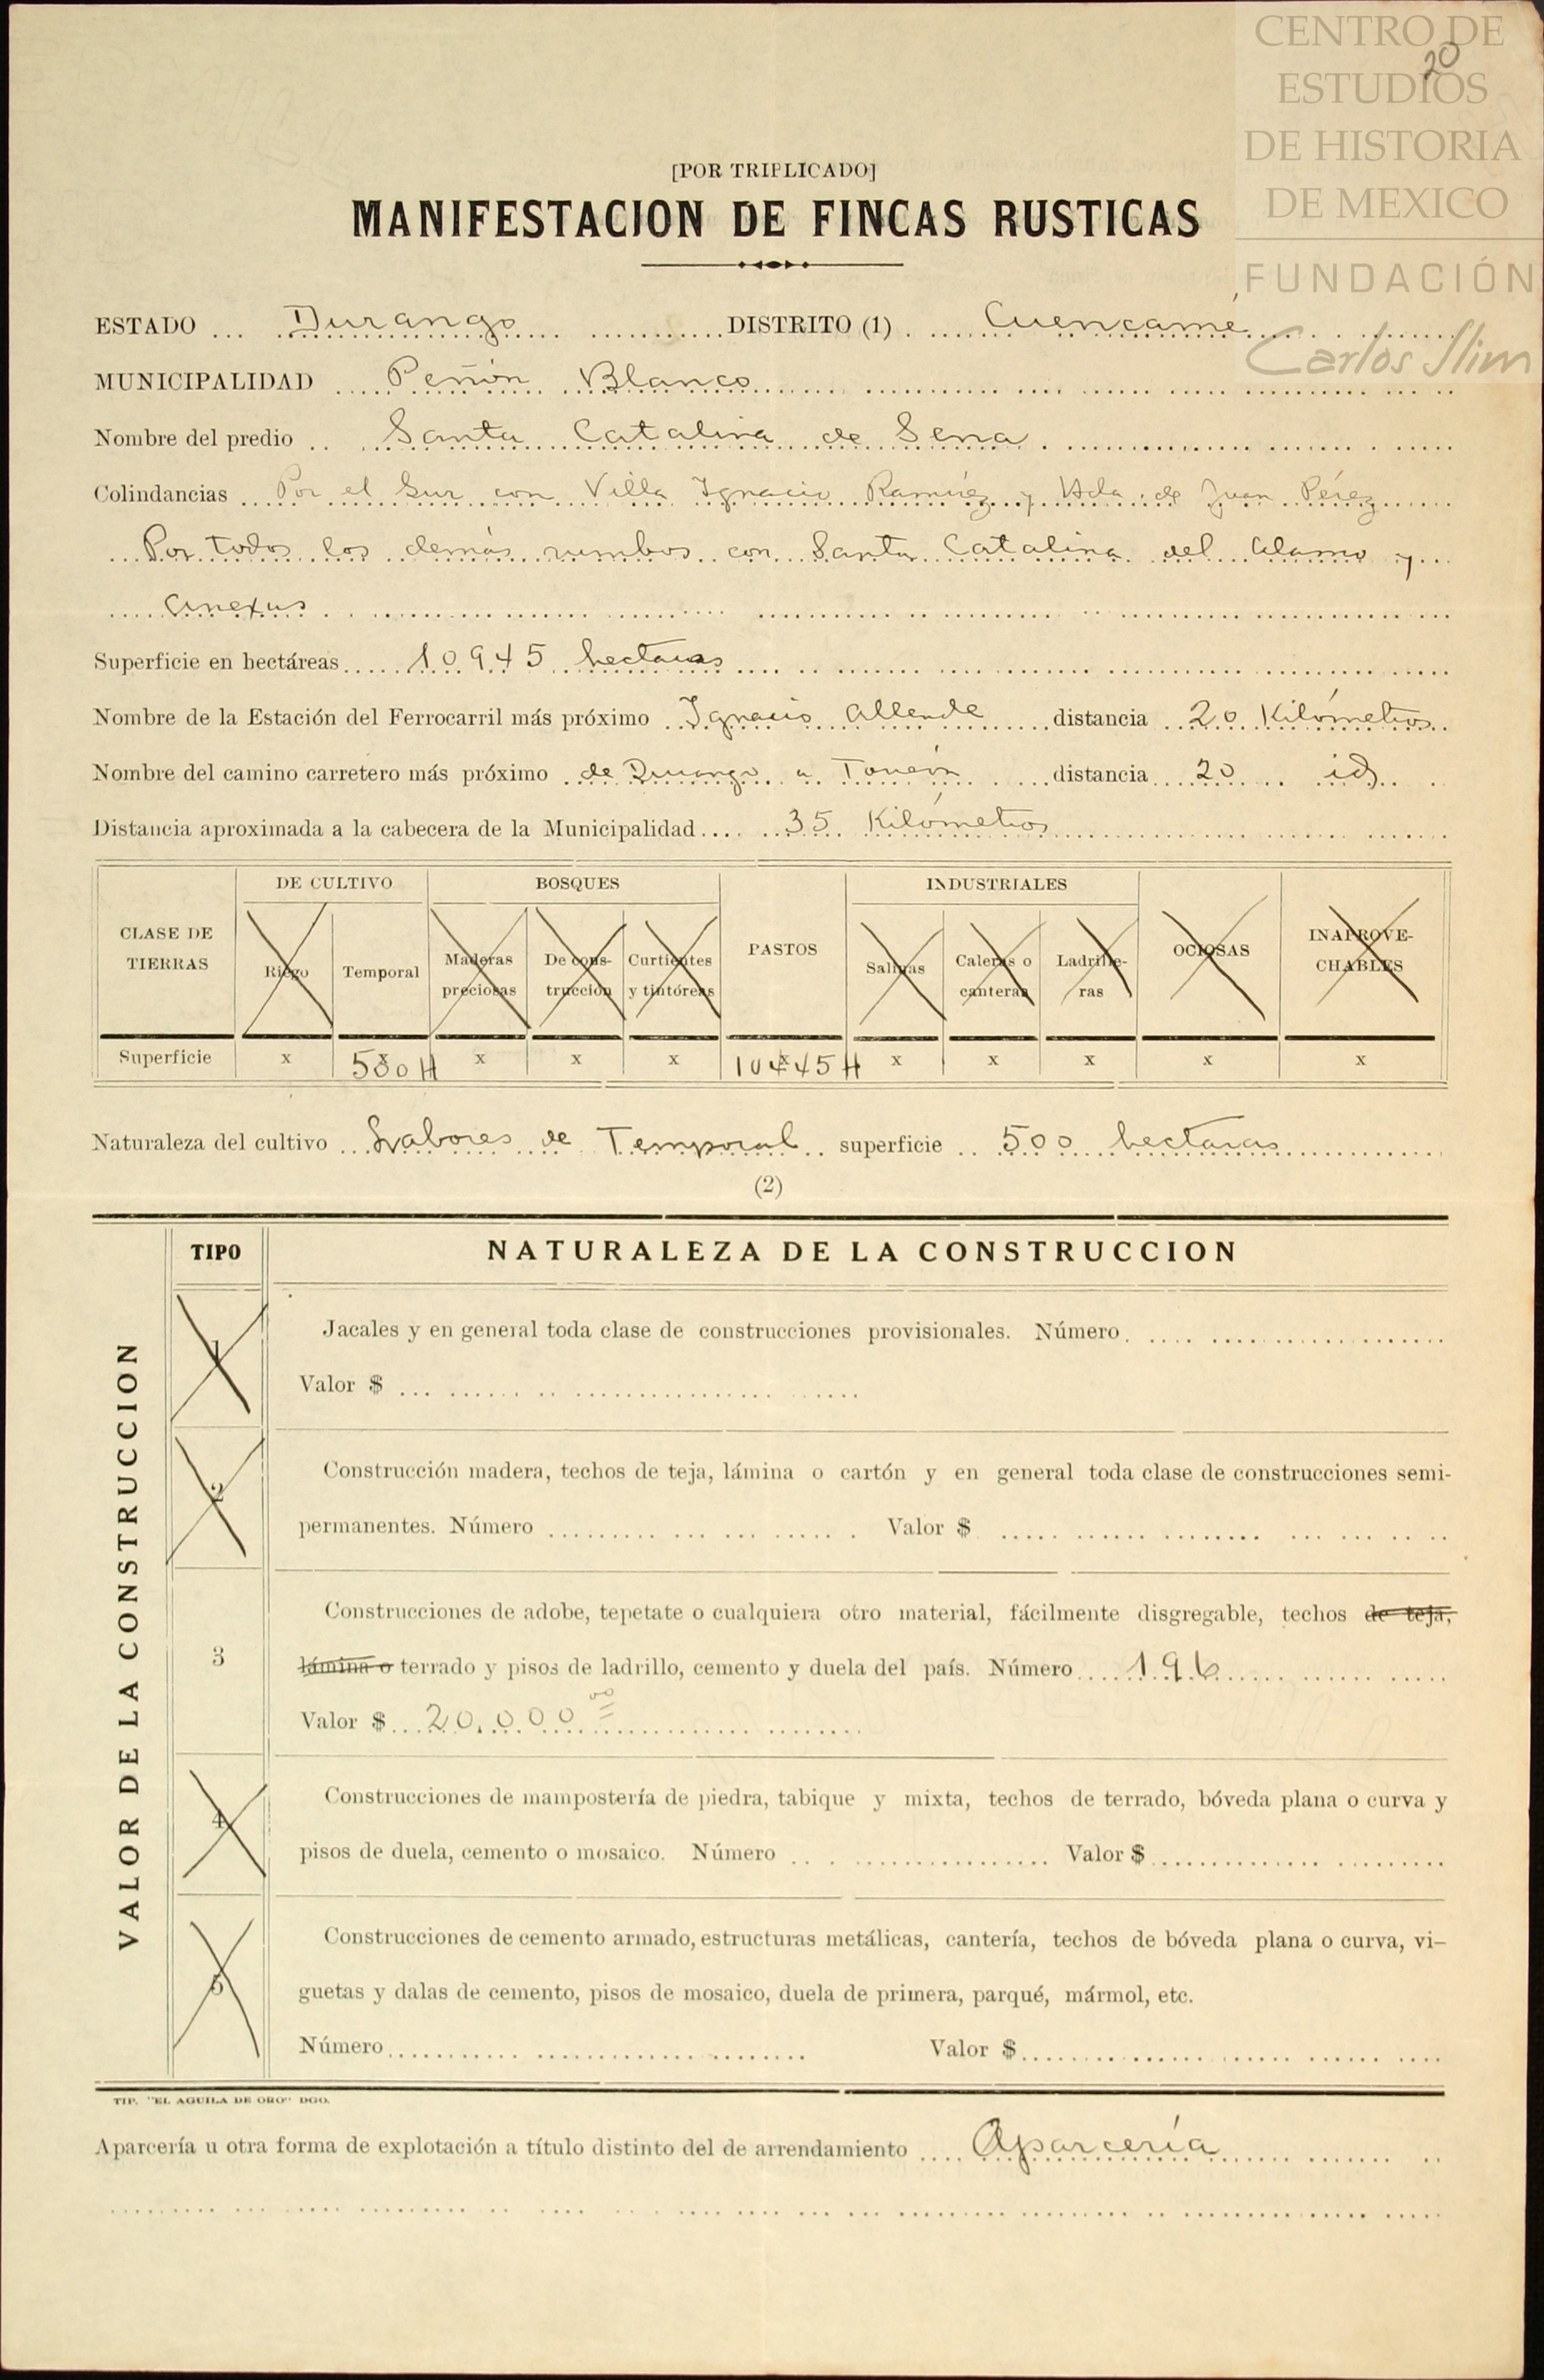 CENTRO DE
ESTUDIOS
DE HISTORIA
DE MEXICO
FUNDACIÓN
Carlos Slim
20
[POR TRIPLICADO]
MANIFESTACION DE FINCAS RUSTICAS
ESTADO Durango DISTRITO (1) Cuencamé
MUNICIPALIDAD Peñón Blanco
Nombre del predio Santa Catalina de Sena
Colindancias Por el Sur con Villa Ignacio Ramírez y Hda. de Juan Pérez
Por todos los demás rumbos con Santa Catalina del Alamo y
anexus
Superficie en hectáreas 10945 hectaras
Nombre de la Estación del Ferrocarril más próximo Ignacio Allende distancia 20 Kilómetros
Nombre del camino carretero más próximo de Durango a Toneón distancia 20 id
Distancia aproximada a la cabecera de la Municipalidad 35 Kilómetros
CLASE DE TIERRAS
DE CULTIVO BOSQUES PASTOS INDUSTRIALES OCIOSAS INAPROVE-CHABLES
Riego Temporal Maderas preciosas De cons-trucción Curtientes y tintóreas Salinas Caleras o canteras Ladrille-ras
Superficie x 500 H x x x 10445 H x x x x x
Naturaleza del cultivo Labores de Temporal superficie 500 hectaras
(2)
VALOR DE LA CONSTRUCCION
TIPO NATURALEZA DE LA CONSTRUCCION
1 Jacales y en general toda clase de construcciones provisionales. Número
Valor $
2 Construcción madera, techos de teja, lámina o cartón y en general toda clase de construcciones semi-
permanentes. Número Valor $
3 Construcciones de adobe, tepetate o cualquiera otro material, fácilmente disgregable, techos de teja,
lámina o terrado y pisos de ladrillo, cemento y duela del país. Número 196
Valor $ 20.000 00
4 Construcciones de mampostería de piedra, tabique y mixta, techos de terrado, bóveda plana o curva y
pisos de duela, cemento o mosaico. Número Valor $
5 Construcciones de cemento armado, estructuras metálicas, cantería, techos de bóveda plana o curva, vi-
guetas y dalas de cemento, pisos de mosaico, duela de primera, parqué, mármol, etc.
Número Valor $
TIP. "EL AGUILA DE ORO" DGO.
Aparcería u otra forma de explotación a título distinto del de arrendamiento Aparcería